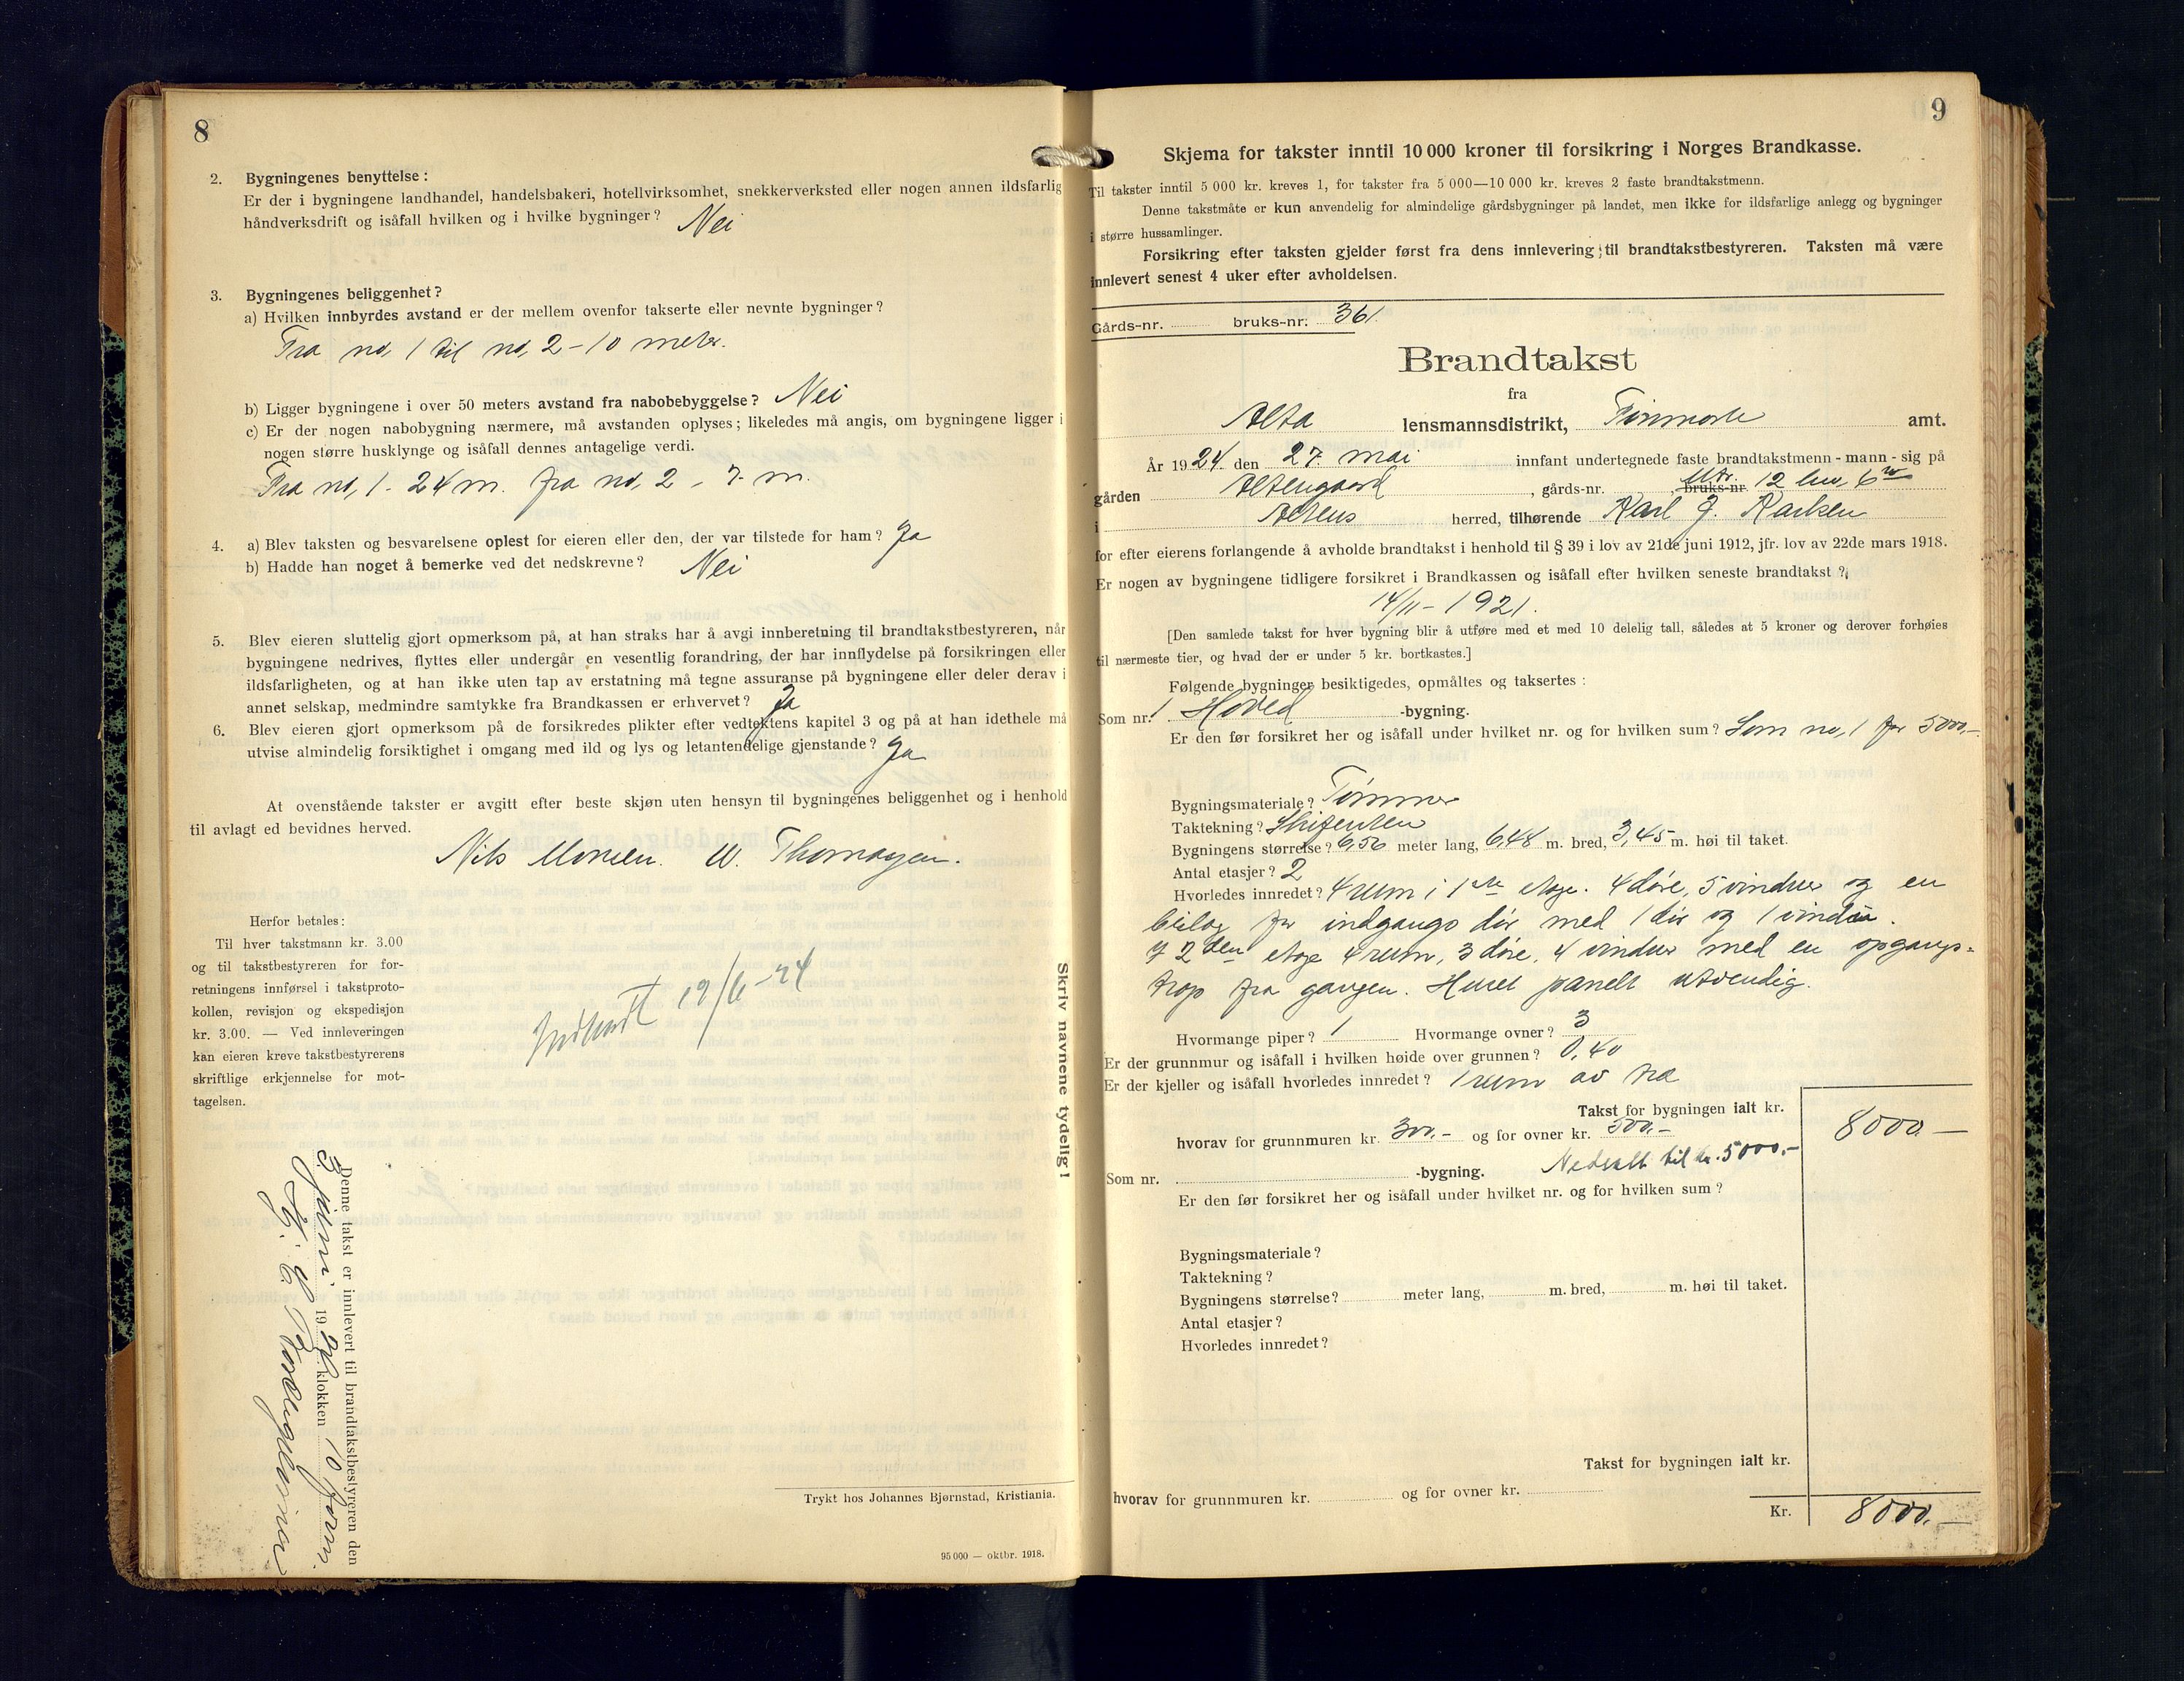 8
2. Bygningenes benyttelse:
Er der i bygningene landhandel, handelsbakeri, hotellvirksomhet, snekkerverksted eller nogen annen ildsfarlig
håndverksdrift og isåfall hvilken og i hvilke bygninger? Nei
3. Bygningenes beliggenhet?
a) Hvilken innbyrdes avstand er der mellem ovenfor takserte eller nevnte bygninger?
Fra no, 1 til no, 2 - 10 meter.
b) Ligger bygningene i over 50 meters avstand fra nabobebyggelse? Nei
c) Er der nogen nabobygning nærmere, må avstanden oplyses; likeledes må angis, om bygningene ligger i
nogen større husklynge og isåfall dennes antagelige verdi.
Fra no, 1 - 24 m. fra no, 2 - 7 m.
4. a) Blev taksten og besvarelsene oplest for eieren eller den, der var tilstede for ham? Ja
b) Hadde han noget å bemerke ved det nedskrevne? Nei
5. Blev eieren sluttelig gjort opmerksom på, at han straks har å avgi innberetning til brandtakstbestyreren, når
bygningene nedrives, flyttes eller undergår en vesentlig forandring, der har innflydelse på forsikringen eller
ildsfarligheten, og at han ikke uten tap av erstatning må tegne assuranse på bygningene eller deler derav i
annet selskap, medmindre samtykke fra Brandkassen er erhvervet? Ja
6. Blev eieren gjort opmerksom på de forsikredes plikter efter vedtektens kapitel 3 og på at han idethele må
utvise almindelig forsiktighet i omgang med ild og lys og letantendelige gjenstande? Ja
At ovenstående takster er avgitt efter beste skjøn uten hensyn til bygningenes beliggenhet og i henhold
til avlagt ed bevidnes herved.
Nils W.
Herfor betales:
Til hver takstmann kr. 3.00
og til takstbestyreren for for-
retningens innførsel i takstproto-
kollen, revisjon og ekspedisjon
kr. 3.00. — Ved innleveringen
kan eieren kreve takstbestyrerens
skriftlige erkjennelse for mot-
tagelsen.
19/6-24
Skriv navnene tydelig!
Denne takst er innlevert til brandtakstbestyreren den
3 juni 1924 klokken 10 form.
Trykt hos Johannes Bjørnstad, Kristiania.
95 000 — oktbr. 1918.
9
Skjema for takster inntil 10 000 kroner til forsikring i Norges Brandkasse.
Til takster inntil 5 000 kr. kreves 1, for takster fra 5 000—10 000 kr. kreves 2 faste brandtakstmenn.
Denne takstmåte er kun anvendelig for almindelige gårdsbygninger på landet, men ikke for ildsfarlige anlegg og bygninger
i større hussamlinger.
Forsikring efter taksten gjelder først fra dens innlevering til brandtakstbestyreren. Taksten må være
innlevert senest 4 uker efter avholdelsen.
Gårds-nr. bruks-nr. 361.
Brandtakst
fra
Alta lensmannsdistrikt, Finmark amt.
År 1924 den 27. mai innfant undertegnede faste brandtakstmenn - mann - sig på
gården Altengaard, gårds-nr. bruks-nr. Mtr. 12 lnr, 6
i Altens herred, tilhørende Karl J. Karlsen
for efter eierens forlangende å avholde brandtakst i henhold til § 39 i lov av 21de juni 1912, jfr. lov av 22de mars 1918.
Er nogen av bygningene tidligere forsikret i Brandkassen og isåfall efter hvilken seneste brandtakst?
14/11 - 1921.
[Den samlede takst for hver bygning blir å utføre med et med 10 delelig tall, således at 5 kroner og derover forhøies
til nærmeste tier, og hvad der er under 5 kr. bortkastes.]
Følgende bygninger besiktigedes, opmåltes og taksertes:
Som nr. 1 Hoved -bygning.
Er den før forsikret her og isåfall under hvilket nr. og for hvilken sum? Som no, 1 for 5000,-
Bygningsmateriale? Tømmer
Taktekning?
Bygningens størrelse? 6,56 meter lang, 6,48 m. bred, 3,45 m. høi til taket.
Antal etasjer? 2
Hvorledes innredet? 4 rum i 1ste etage. 4 døre, 5 vinduer og en
bislag for indgangs dør med 1 dør og 1 vindu.
I 2den etage 4 rum, 3 døre, 4 vinduer med en opgangs-
trap fra gangen. Huset panelt utvendig.
Hvormange piper? 1 Hvormange ovner? 3
Er der grunnmur og isåfall i hvilken høide over grunnen? 0,40
Er der kjeller og isåfall hvorledes innredet? 1 rum av
Takst for bygningen ialt kr. 8000 —
hvorav for grunnmuren kr. 300.- og for ovner kr. 500.-
Nedsatt til kr. 5000.-
Som nr. -bygning.
Er den før forsikret her og isåfall under hvilket nr. og for hvilken sum?
Bygningsmateriale?
Taktekning?
Bygningens størrelse? meter lang, m. bred, m. høi til taket.
Antal etasjer?
Hvorledes innredet?
Takst for bygningen ialt kr.
hvorav for grunnmuren kr. og for ovner kr.
Kr. 8000.—